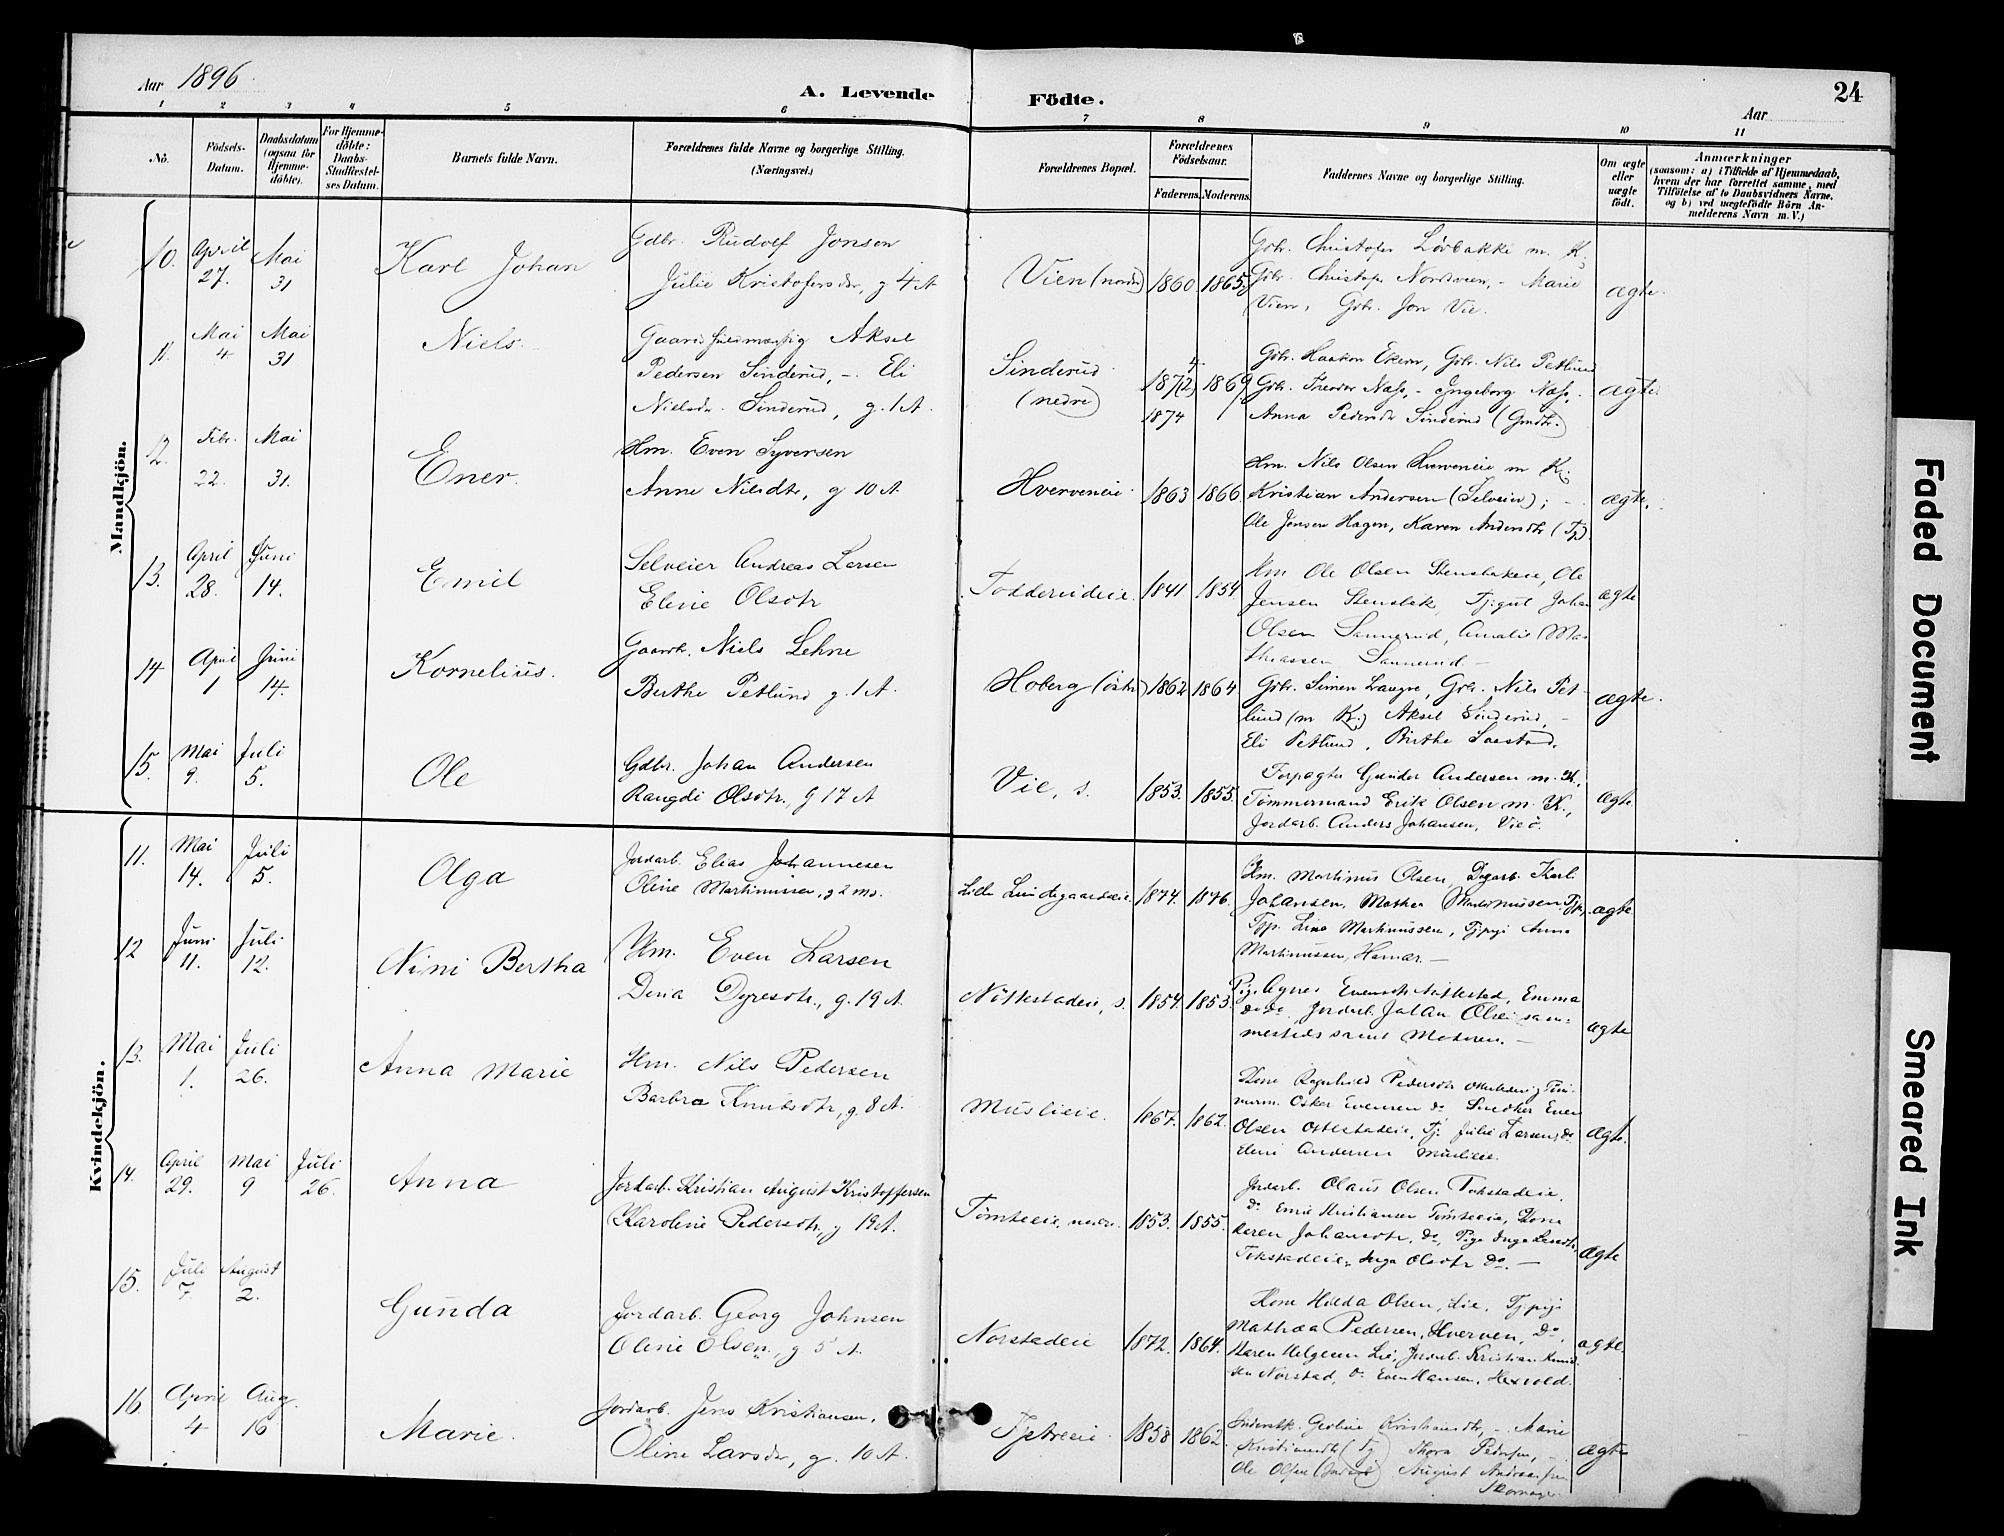 Aar 1896.
A. Levende Födte.
24
Aar
1 2 3 4 5 6 7 8 9 10 11
No.
Födsels-Datum.
Daabsdatum (ogsaa for Hjemme-döbte).
For Hjemme-döbte: Daabs-Stadfæstel-ses Datum.
Barnets fulde Navn.
Forældrenes fulde Navne og borgerlige Stilling. (Næringsvei.)
Forældrenes Bopæl.
Forældrenes Födselsaar.
Faderens. Moderens.
Faddernes Navne og borgerlige Stilling.
Om ægte eller uægte födt.
Anmærkninger
(saasom: a) i Tilfælde af Hjemmedaab,
hvem der har forrettet samme, med
Tilföielse af to Daabsvidners Navne.
og b) ved uægtefödte Börn An-
melderens Navn m. V.)
Mandkjön.
10. April 27. Mai 31 Karl Johan
Gdbr. Rudolf Jonsen
Julie Kristofersdr, g 4 A
Vien (nordr) 1860 1865
Gbr. Christofer Løvbakke m. K.
Gbr. Christofer Nordvien, - Marie
Vien, Gbr. Jon Vie.
ægte.
11. Mai 4 Mai 31 Niels.
Gaardfuldmægtig Aksel
Pedersen Sinderud, - Eli
Nielsdr. Sinderud, g. 1 A.
Sinderud (nedre) 187(2) 4. 1874 1869
Gbr. Haakon Ekern, Gbr. Nils Petlund
Gbr. Theodor Næss, - Ingeborg Næss,
Anna Pedersdr Sinderud (Gmdtr.)
ægte.
12. Febr. 22. Mai 31. Ener.
Hm. Even Syversen
Anne Nilsdtr, g 10 A.
Hverveneie. 1863 1866
Hm. Nils Olsen Hverveneie m K.
Kristian Andersen (Selveier); -
Ole Jensen Hagen, Karen Andersdtr (Tj).
ægte.
13. April 28. Juni 14. Emil
Selveier Andreas Larsen
Eline Olsdtr
Todderudeie. 1841 1854
Hm Ole Olsen Stensbakeie, Ole
Jensen Stensbak, Tj.gut Johan
Olsen Sannerud, Amalie Ma-
thiassen Sannerud. -
ægte
14 April 1 Juni 14. Kornelius.
Gaardb. Niels Lehne
Berthe Petlund g. 1 A.
Hoberg (østr) 1862 1864
Gbr. Simen Laugre, Gbr. Nils Pet-
lund (m K.) Aksel Sinderud, -
Eli Petlund, Birthe Saastad.
ægte.
15. Mai 9. Juli 5. Ole
Gdbr. Johan Andersen
Rangdi Olsdtr, g 17 A
Vie, s. 1853. 1855.
Forpagter Gunder Andersen m. K.
Tømmermand Erik Olsen m. K.,
Jordarb. Anders Johansen, Vie ø.
ægte
Kvindekjön.
11. Mai 14. Juli 5. Olga
Jordarb. Elias Johannesen
Oline Martinussen, g 2 md.
Lille Lundsgaardseie 1874. 1876.
Hm. Martinus Olsen, Dagarb. Karl
Johansen, Mathea Martinussen Tjp,
Tjp. Lina Martinussen, Tjpige Anna
Martinussen, Hamar. -
ægte
12 Juni 11. Juli 12. Nini Bertha
Hm. Even Larsen
Dina Dyresdtr, g. 19 A.
Nøttestadeie, s. 1854. 1853.
Pige Agnes Evensdtr Nøttestad, Emma
do do, Jordarb. Johan Olsen sam-
mesteds samt Moderen. -
ægte
13. Mai 1. Juli 26. Anna Marie
Hm. Nils Pedersen
Barbra Knutsdtr, g. 8 A.
Muslieie. 1867. 1862.
Kone Ragnhild Pedersdtr Ottestadeie, Tøm-
merm. Oskar Evensen do Snedker Even
Olsen Ottestadeie, Tj. Julie Larsen, do
Eline Andersen Muslieie.
ægte.
14. April 29. Mai 9 Juli 26. Anna
Jordarb. Kristian August Kristoffersen
Karoline Pedersdtr, g 19 A.
Tømteeie, nedre. 1853. 1855.
Jordarb. Olaus Olsen Tokstadeie,
do Emil Kristiansen Tømteeie, Kone
Karen Johansdtr, do, Pige Inga Larsdtr,
Tokstadeie, Inga Olsdtr do. -
ægte
15. Juli 7. August 2. Gunda
Jordarb. Georg Johnsen
Oline Olsen, g 5 A.
Norstadeie 1872. 1864.
Kone Hilda Olsen, Lie, Tjpige
Mathea Pedersen, Hverven, Do,
Karen Helgesen Lie, Jordarb. Kristian Knud-
sen Norstad, do Even Hansen, Hexvold.
ægte
16 April 4 Aug. 16 Marie.
Jordarb. Jens Kristiansen,
Oline Larsdtr, g. 10 A.
Tjetreeie. 1858 1862.
Inderstk. Gerline Kristiansdtr, - Marie
Kristiansdtr (Tj) Thora Pedersen, -
Ole Olsen (Jordarb) August Andreassen
Skomager
ægte
Faded Document
Smeared Ink